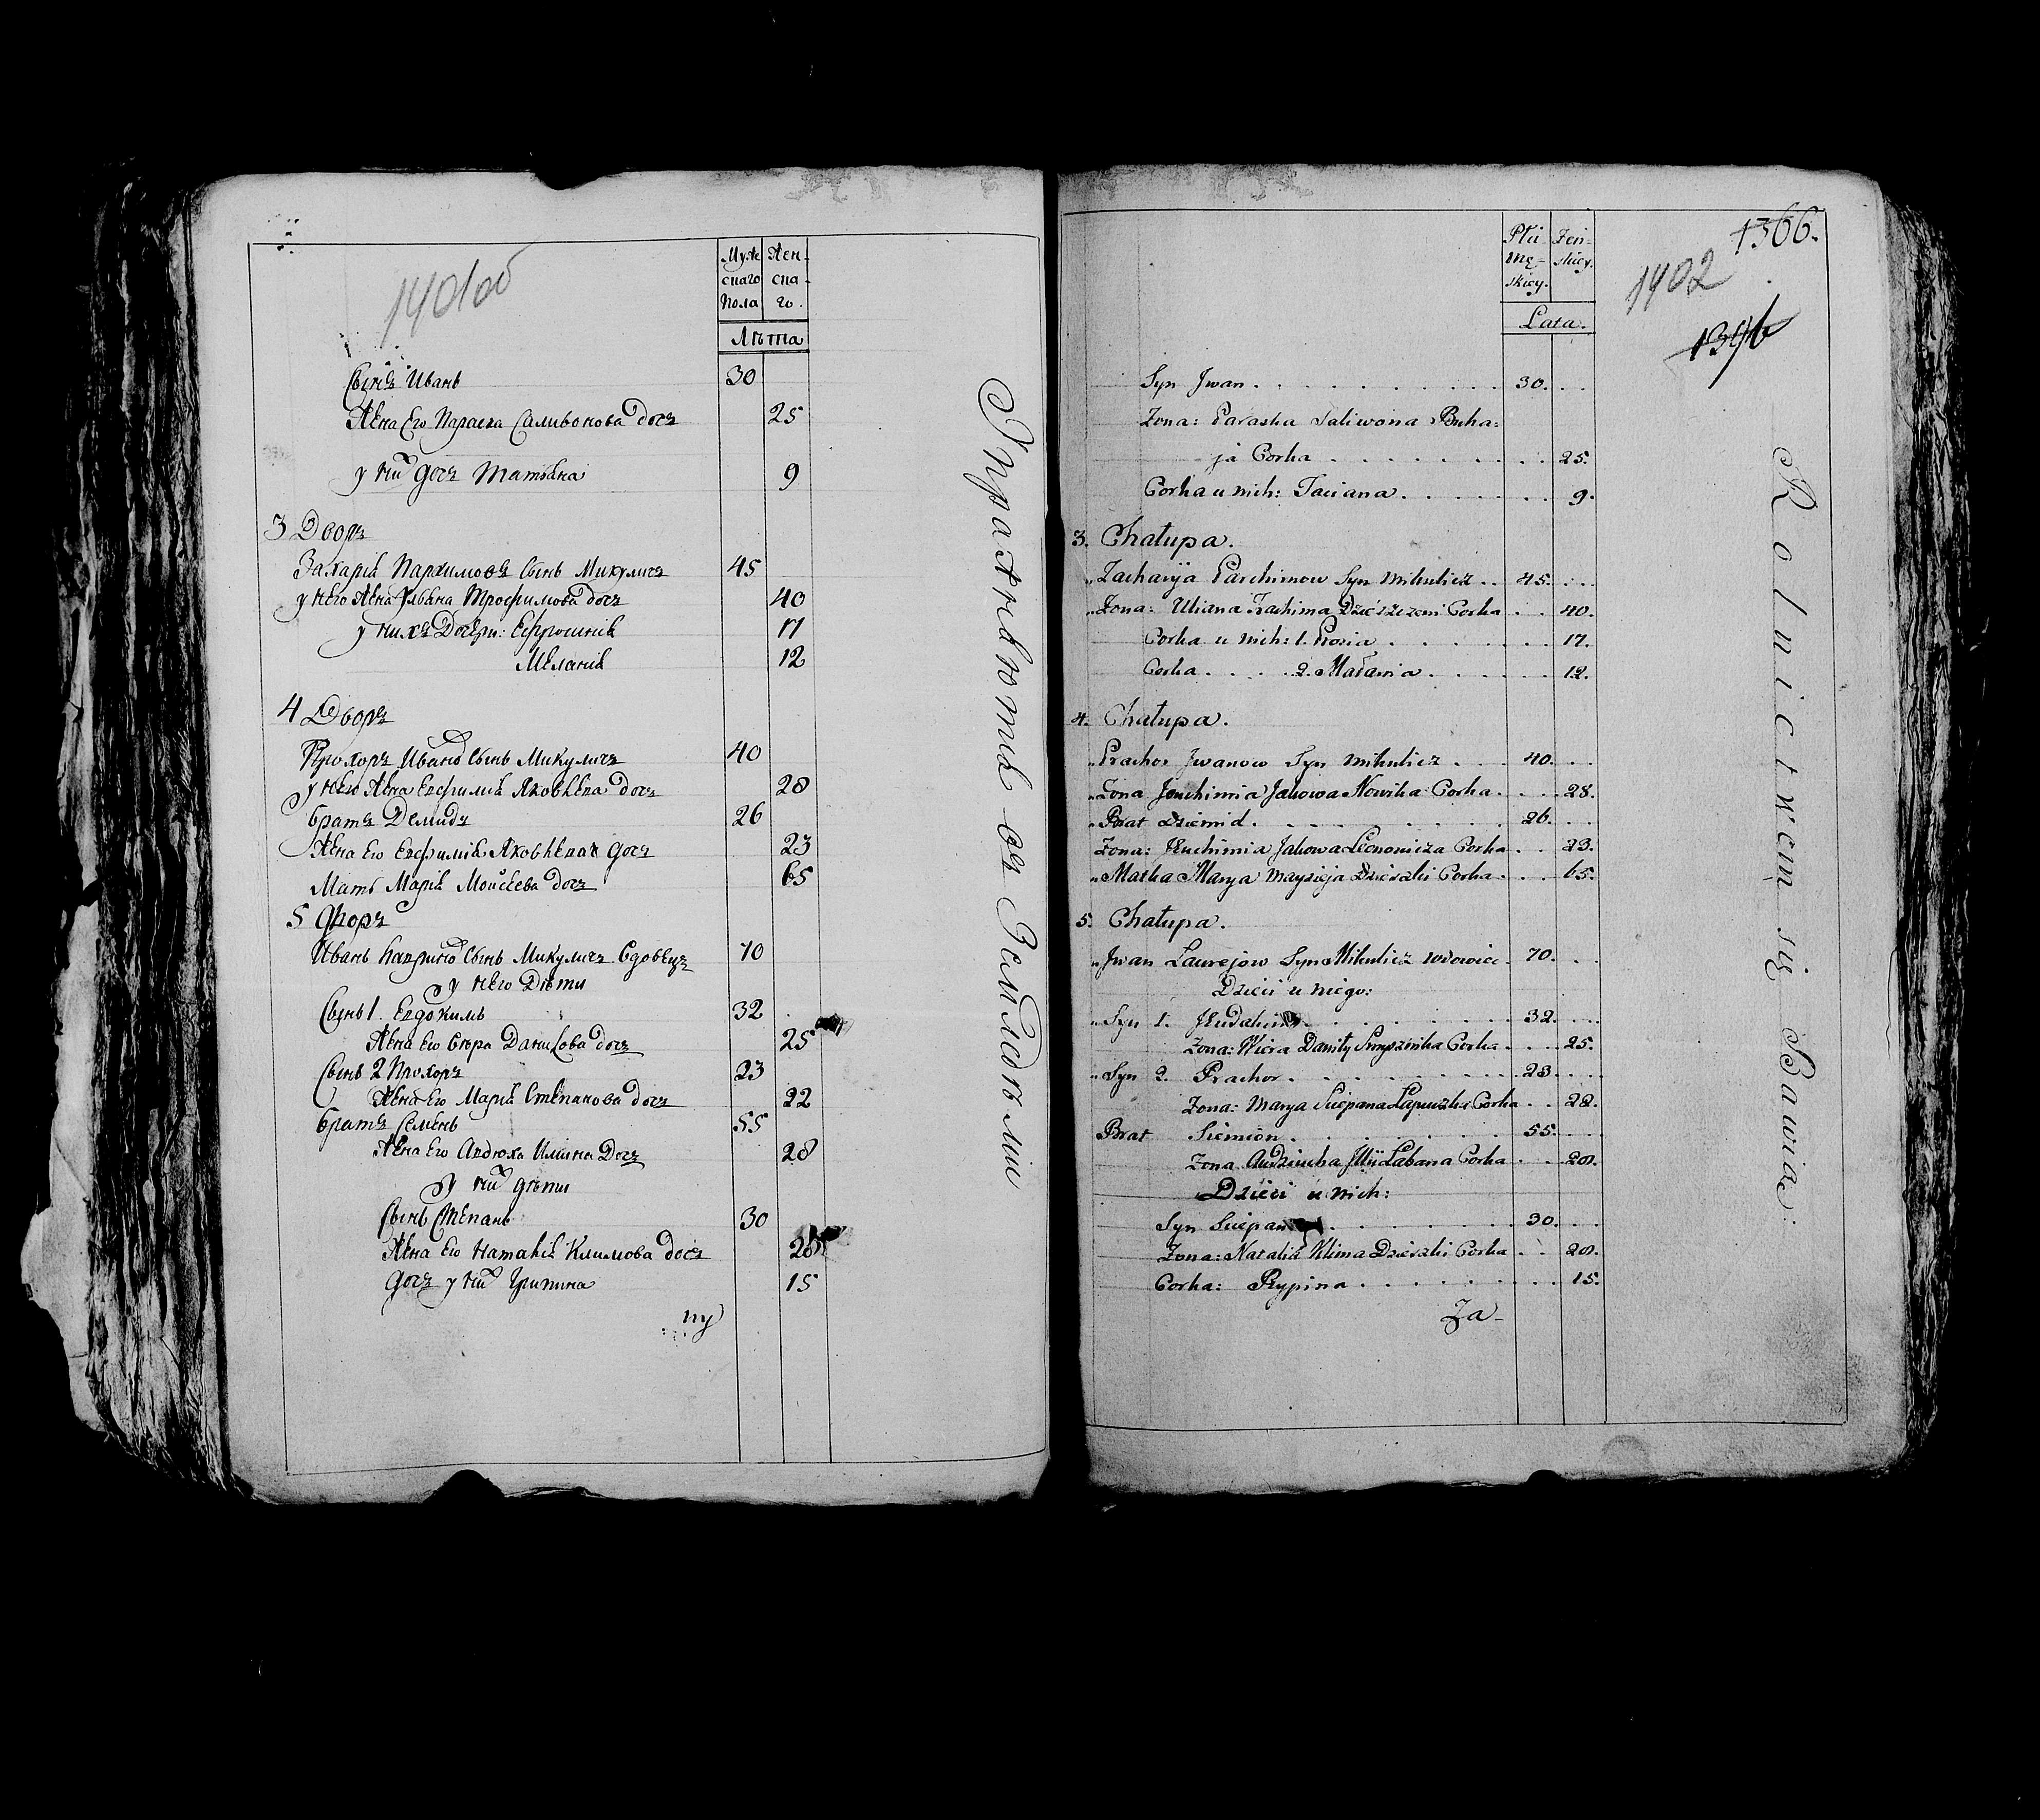 1401об
Муже Жен-
скаго ска-
пола го.
Лѣта
Сынъ Иванъ 30
Жена Его Параска Саливонова дочь 25
у них дочь Татьяна 9
3 Дворъ
Захарiй Пархимовъ Сынъ Микуличъ 45
у него Жена Ульяна Трофимова дочь 40
у нихъ Дочери: Ефросинiя 17
Меланiя 12
4 Дворъ
Прохоръ Иванов Сынъ Микуличъ 40
у него Жена Евфимiя Яковлева дочь 28
братъ Демидъ 26
Жена Его Евфимiя Яковлева дочь 23
Мать Марiя Моисеева дочь 65
5 Дворъ
Иванъ Сынъ Микуличъ Вдовецъ 70
у него Дѣти
Сынъ 1. Евдокимъ 32
Жена Его Вѣра Данилова дочь 25
Сынъ 2 Прохоръ 23
Жена Его Марiя Степанова дочь 22
братъ Семенъ 55
Жена Его Авдюха Илiина Дочь 28
у них дѣти
Сынъ Степанъ 30
Жена Его Наталiя Климова дочь 28
дочь у них Грипина 15
пу
Упражняются въ Земледѣлiи
1366.
1402
1396
Płci Żeń-
mę- skiey.
skiey.
Lata.
Syn Jwan . . . 30. . .
Zona: Paraska Saliwona Buha=
ja Corka . . . 25.
Corka u nich: Taciana . . . 9.
3. Chałupa.
„Zacharyja Parchimow Syn Mikulicz . . 45. . .
„Zona: Uliana Corka . . 40.
Corka u nich: 1. Prosia . . . 17.
Corka . . . 2. Małania . . . 12.
4. Chałupa.
„Prachor Jwanow Syn Mikulicz . . . 40. . .
„Zona Jeuchimia Jakowa Nowika Corka . . . 28.
„Brat Dziemid . . . 26. . .
Zona: Jeuchimia Jakowa Leonowicza Corka . . 23.
„Matka Marya Mayzieja Dzieszki Corka . . . 65.
5. Chałupa.
„Jwan Laurejow Syn Mikulicz wdowiec . 70. . .
Dzieci u niego:
„Syn 1. Jeudakim . . . 32. . .
Zona: Wiera Daniły Corka . . . 25.
„Syn 2. Prachor . . . 23. . .
Zona: Marya Sciepana Corka . . 22.
Brat Siemion . . . 55. . .
Zona Audziucha Jlii Łabana Corka . . . 28.
Dzieci u nich:
Syn Sciepan . . . 30. . .
Zona: Natalia Klima Dzieszki Corka . . 28.
Corka: Rypina . . . 15.
Za-
Rolnictwem się Bawią: